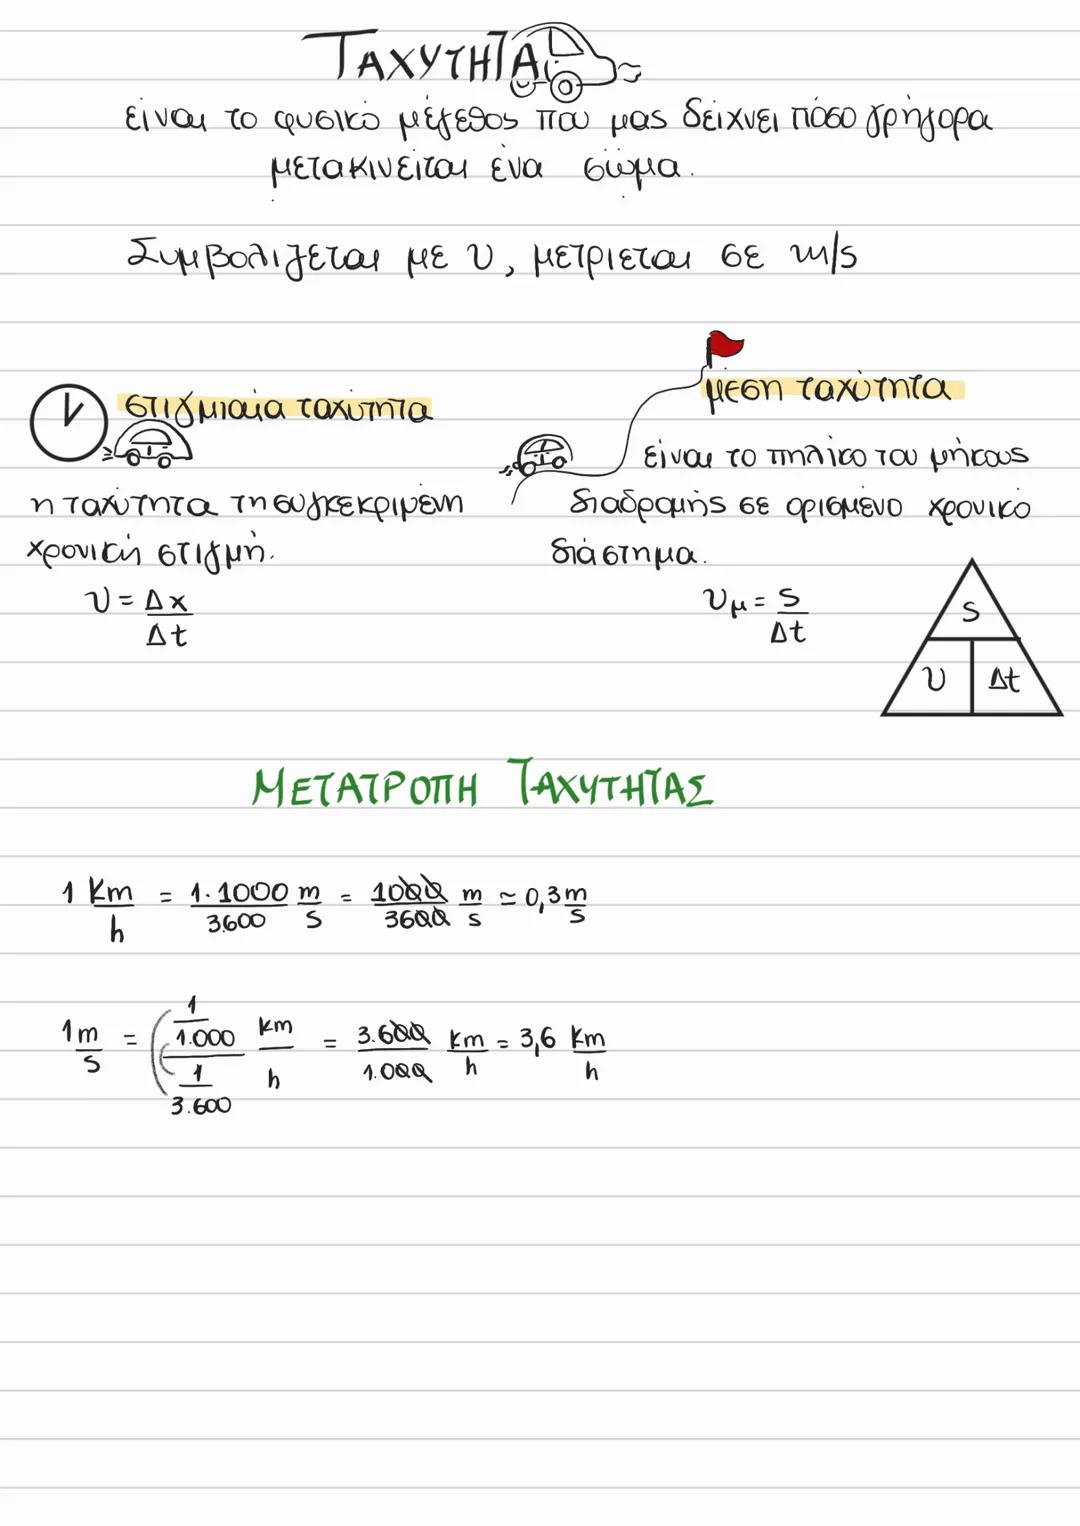 ΤΑΧΥΤΗΤΑ
είναι το φυσικό μέγεθος που μας δείχνει πόσο γρήγορα
μετακινείται ένα σώμα.
Συμβολίζεται με υ, μετριεται σε m/s
στιγμιαία ταχυτητα
μέση ταχύτητα
η ταχύτητα τη συγκεκριμένη
χρονική στιγμή.
υ = Δx
Δt
είναι το πηλίκο του μήκους
διαδρομής σε ορισμένο χρονικό
διάστημα.
υμ = S
Δt
S
υ Δt
ΜΕΤΑΤΡΟΠΗ ΤΑΧΥΤΗΤΑΣ
1 Km/h = 1·1000/3600 m/s = 1000/3600 m/s ≃ 0,3 m/s
1 m/s = (1/1.000)/(1/3.600) km/h = 3.600/1.000 km/h = 3,6 km/h